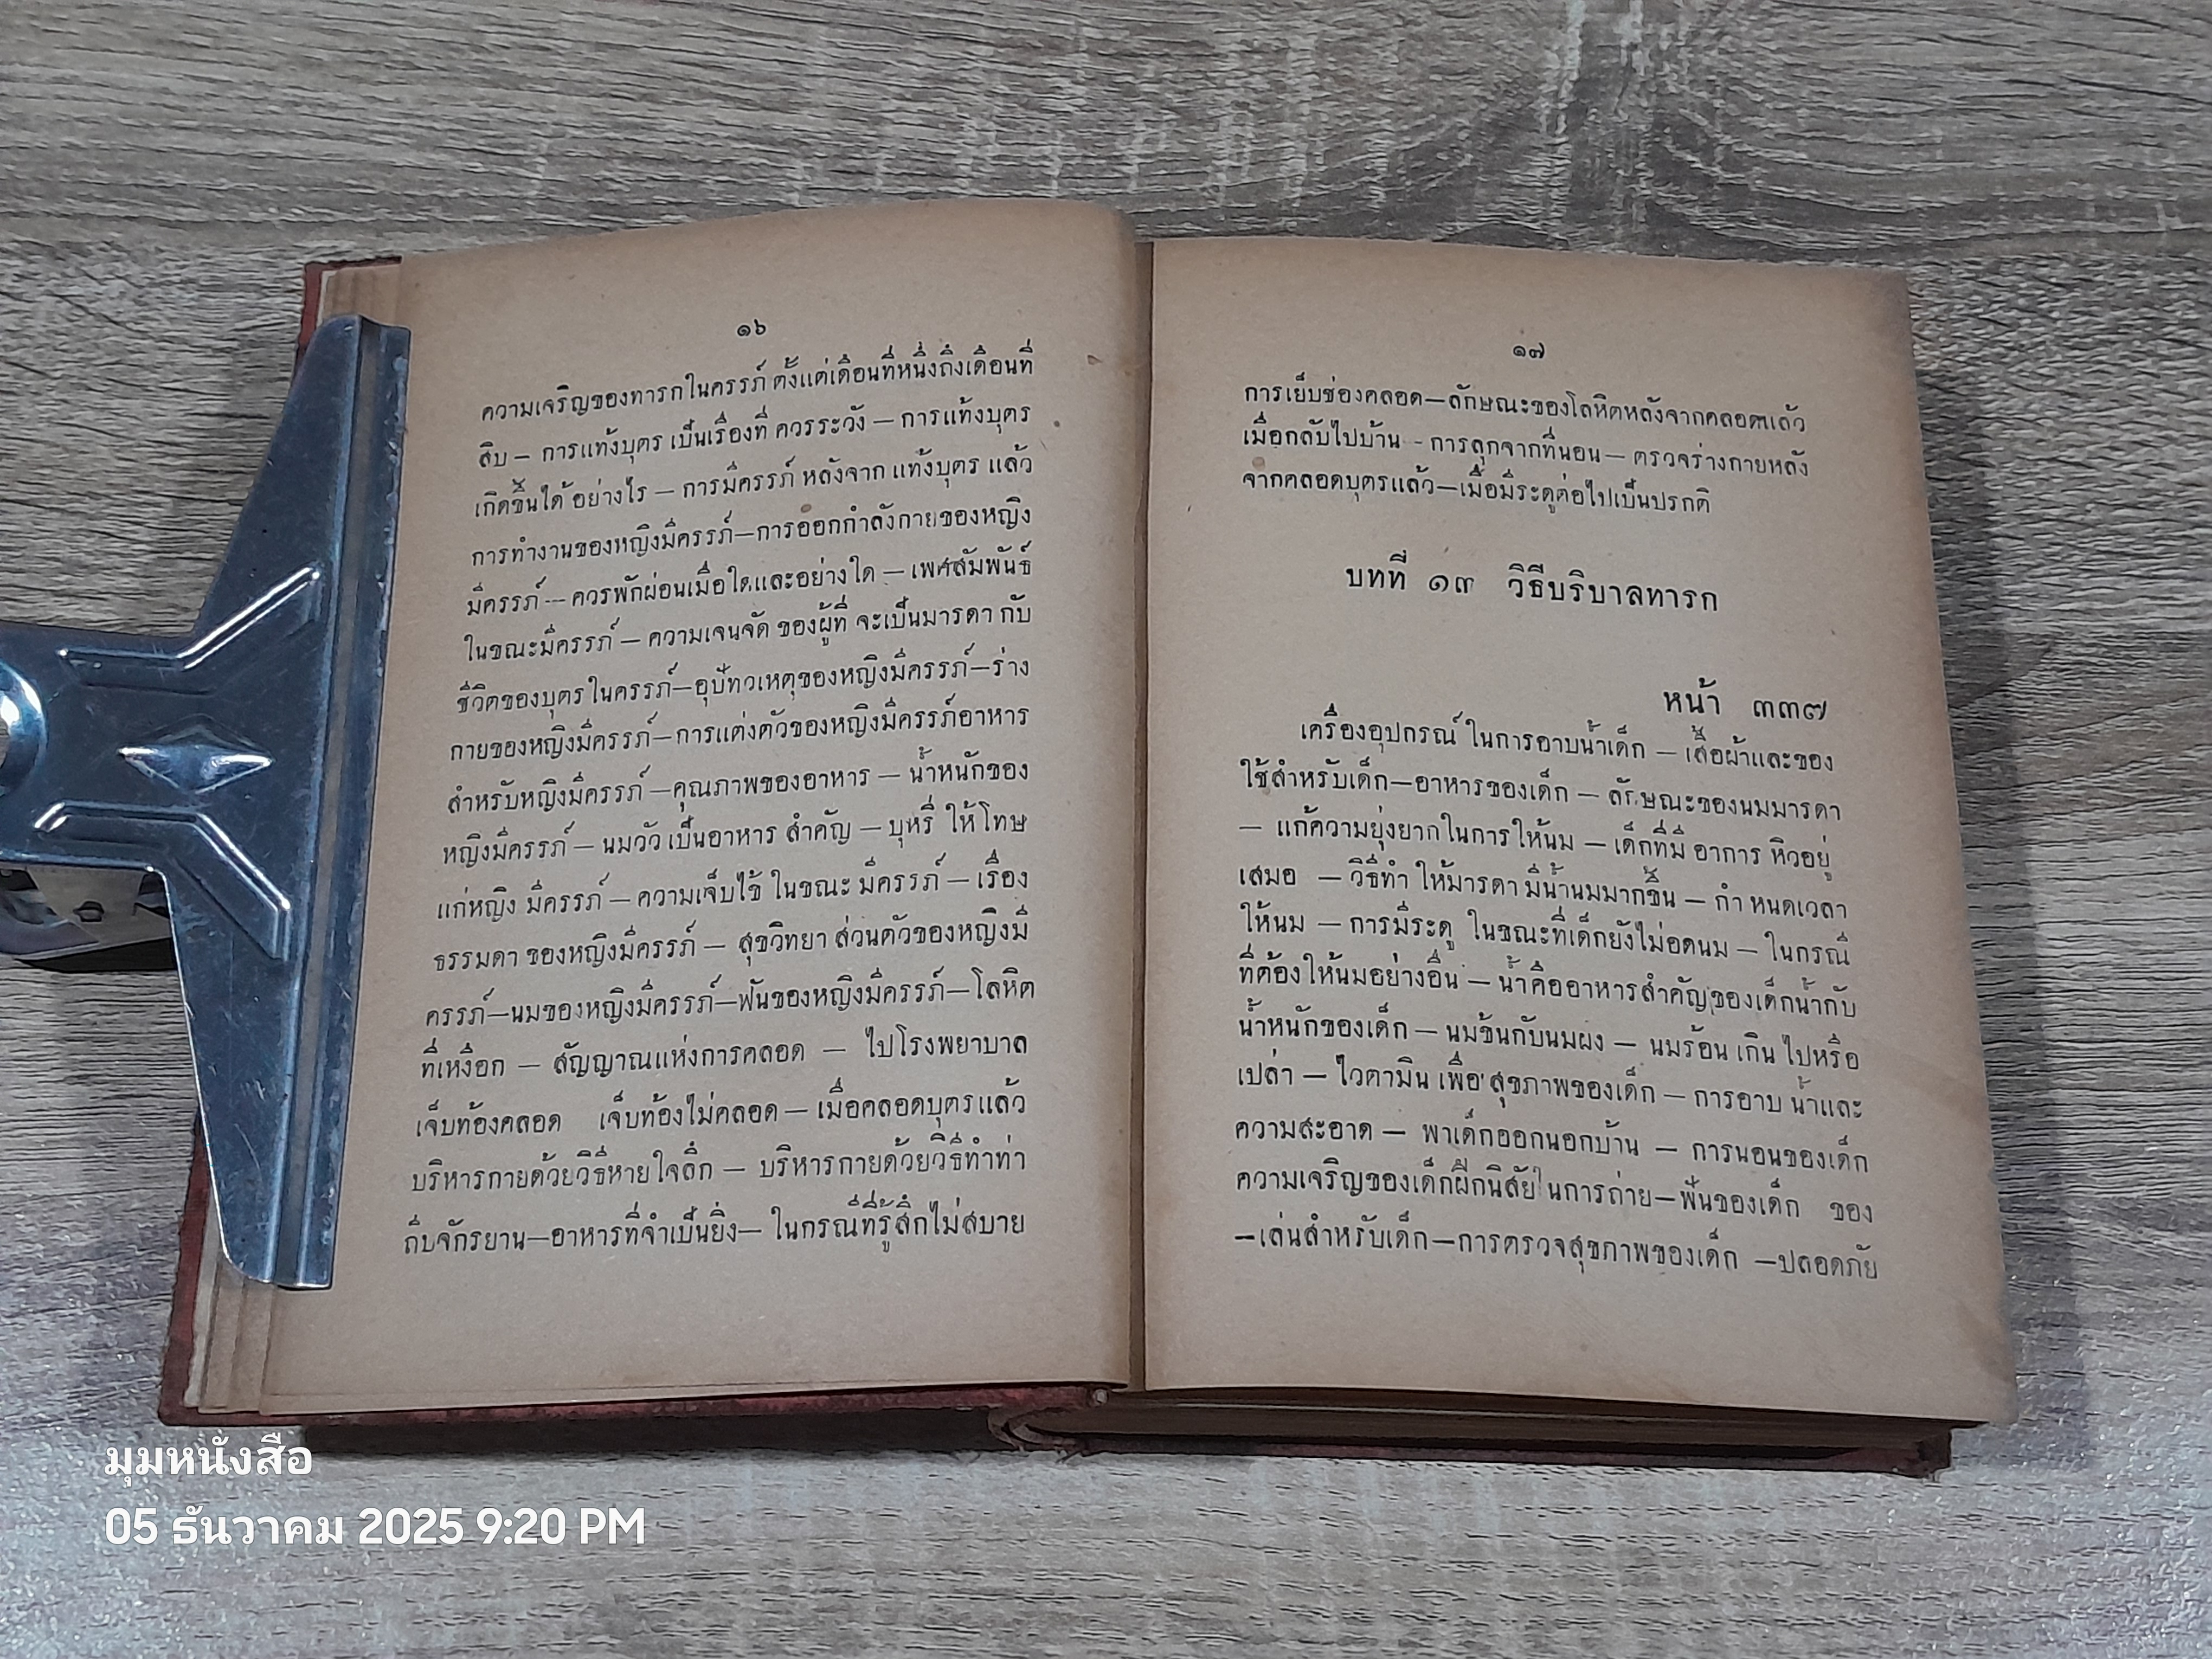 ๑๖
ความเจริญของทารกในครรภ์ ตั้งแต่เดือนที่หนึ่งถึงเดือนที่
สิบ — การแท้งบุตร เป็นเรื่องที่ ควรระวัง — การแท้งบุตร
เกิดขึ้นได้ อย่างไร — การมีครรภ์ หลังจาก แท้งบุตร แล้ว
การทำงานของหญิงมีครรภ์—การออกกำลังกายของหญิง
มีครรภ์ — ควรพักผ่อนเมื่อใดและอย่างใด — เพศสัมพันธ์
ในขณะมีครรภ์ — ความเจนจัด ของผู้ที่ จะเป็นมารดา กับ
ชีวิตของบุตร ในครรภ์—อุปัทวเหตุของหญิงมีครรภ์—ร่าง
กายของหญิงมีครรภ์—การแต่งตัวของหญิงมีครรภ์อาหาร
สำหรับหญิงมีครรภ์ —คุณภาพของอาหาร — น้ำหนักของ
หญิงมีครรภ์ — นมวัว เป็นอาหาร สำคัญ — บุหรี่ ให้โทษ
แก่หญิง มีครรภ์ — ความเจ็บไข้ ในขณะ มีครรภ์ — เรื่อง
ธรรมดา ของหญิงมีครรภ์ — สุขวิทยา ส่วนตัวของหญิงมี
ครรภ์—นมของหญิงมีครรภ์—ฟันของหญิงมีครรภ์—โลหิต
ที่เหงือก — สัญญาณแห่งการคลอด — ไปโรงพยาบาล
เจ็บท้องคลอด เจ็บท้องไม่คลอด — เมื่อคลอดบุตรแล้ว
บริหารกายด้วยวิธีหายใจลึก — บริหารกายด้วยวิธีทำท่า
ถีบจักรยาน—อาหารที่จำเป็นยิ่ง— ในกรณีที่รู้สึกไม่สบาย
๑๗
การเย็บช่องคลอด—ลักษณะของโลหิตหลังจากคลอดแล้ว
เมื่อกลับไปบ้าน - การลุกจากที่นอน — ตรวจร่างกายหลัง
จากคลอดบุตรแล้ว—เมื่อมีระดูต่อไปเป็นปรกติ
บทที่ ๑๓ วิธีบริบาลทารก
หน้า ๓๓๗
เครื่องอุปกรณ์ ในการอาบน้ำเด็ก — เสื้อผ้าและของ
ใช้สำหรับเด็ก—อาหารของเด็ก — ลักษณะของนมมารดา
— แก้ความยุ่งยากในการให้นม — เด็กที่มี อาการ หิวอยู่
เสมอ — วิธีทำ ให้มารดา มีน้ำนมมากขึ้น — กำ หนดเวลา
ให้นม — การมีระดู ในขณะที่เด็กยังไม่อดนม — ในกรณี
ที่ต้องให้นมอย่างอื่น — น้ำคืออาหารสำคัญของเด็กน้ำกับ
น้ำหนักของเด็ก — นมข้นกับนมผง — นมร้อน เกิน ไปหรือ
เปล่า — ไวตามิน เพื่อ สุขภาพของเด็ก — การอาบ น้ำและ
ความสะอาด — พาเด็กออกนอกบ้าน — การนอนของเด็ก
ความเจริญของเด็กฝึกนิสัยในการถ่าย—ฟันของเด็ก ของ
—เล่นสำหรับเด็ก—การตรวจสุขภาพของเด็ก —ปลอดภัย
มุมหนังสือ
05 ธันวาคม 2025 9:20 PM